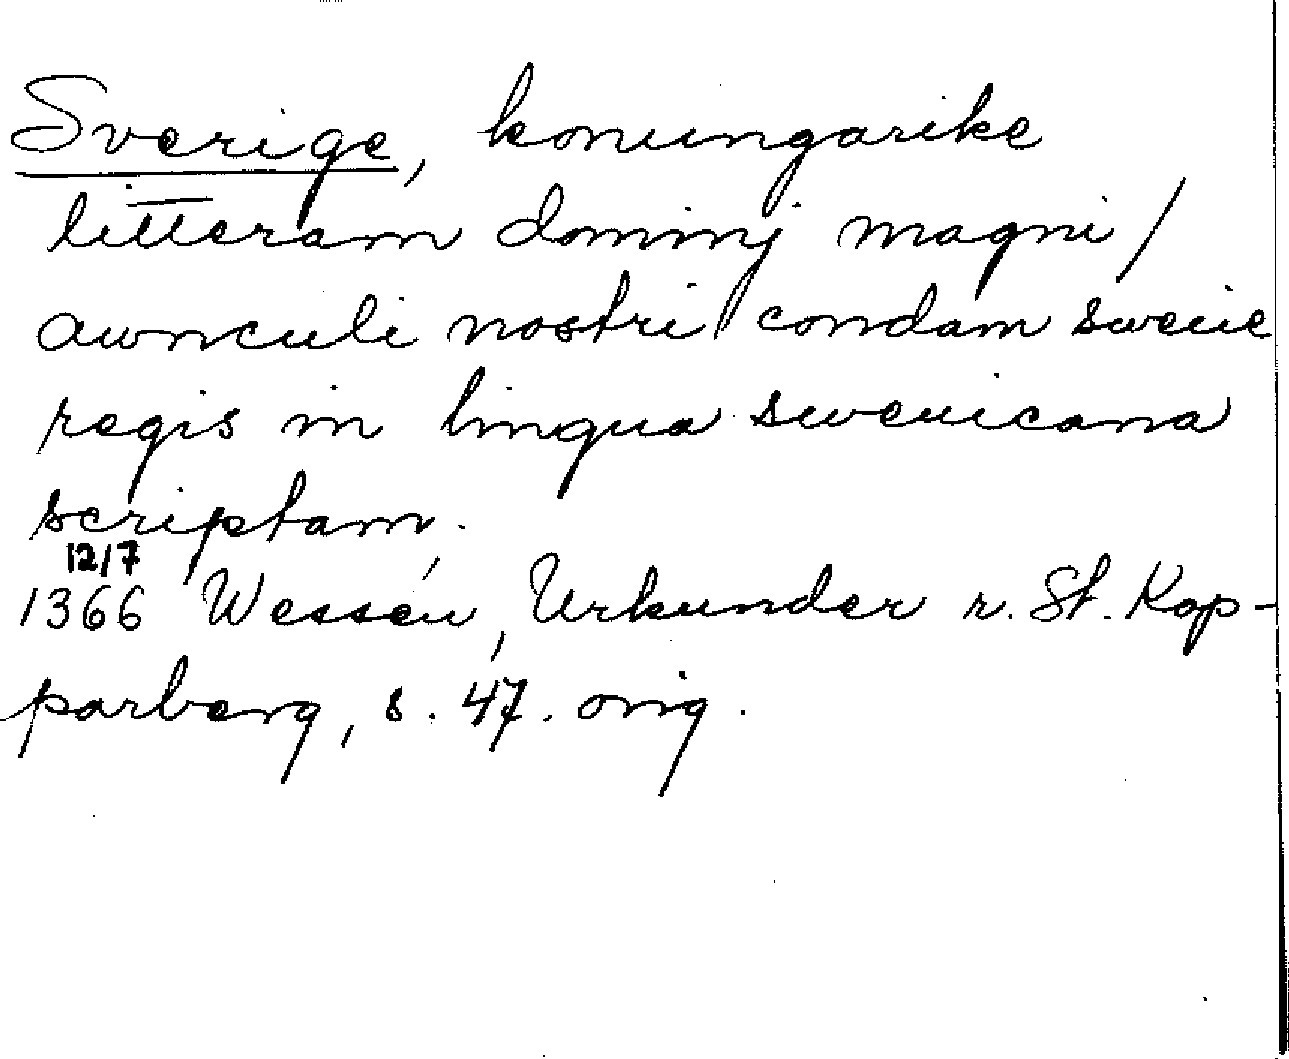 Sverige, konungarike
litteram dominj magni /
awnculi nostri condam sweuie
regis in lingua sweuicana
scriptam.
12/7
1366 Wessén, Urkunder r. St. Kop-
parberg, s. 47. orig.